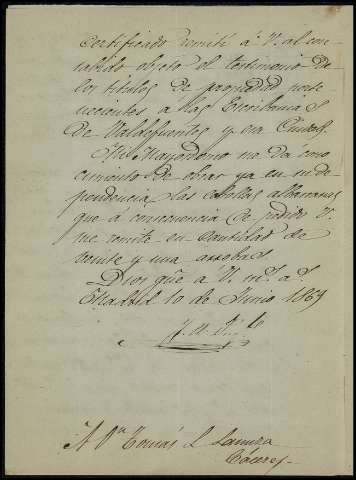 certificado remití á V. al con-
sabido objeto el testimonio de
los títulos de propiedad perte-
necientes á las Escribanias
de Valdefuentes y esa Ciudad.
Mi Mayordomo me dá cono-
cimiento de obrar ya en su de-
pendencia las cebollas albarranas
que á consecuencia de pedido V.
me remite en cantidad de
veinte y una arrobas.
Dios gûe á V. ms. as.
Madrid 10 de Junio 1869
A Dn. Tomás L
Cáceres